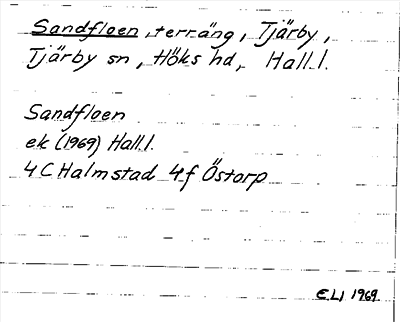 Sandfloen, terräng, Tjärby,
Tjärby sn, Höks hd, Hall.l.
Sandfloen
ek (1969) Hall.l.
4C Halmstad 4f Östorp
ELI 1969